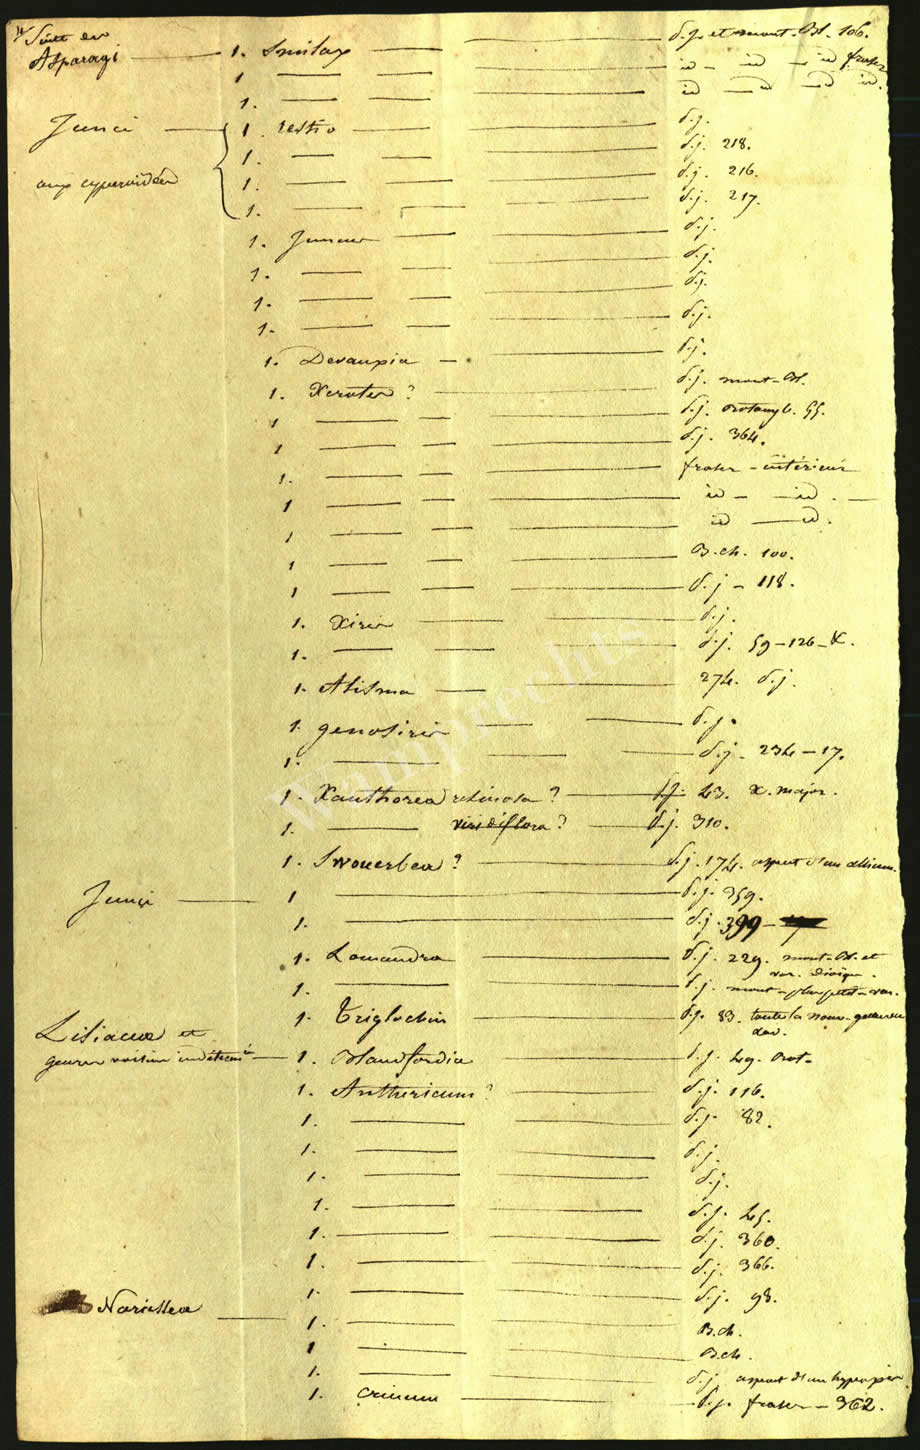 Suite des
Asparagi — 1. Smilax — — d. j. et mont-Bl. 106.
1 — — — id — id — id fraser
1. — — — id — id — id id.
Junci — 1. restio — — d. j.
1. — — — d. j. 218.
aux cyperoidées 1. — — — d. j. 216.
1. — — — d. j. 217.
1. Juncus — — d. j.
1. — — — d. j.
1. — — — d. j.
1. — — — d. j.
1. Devauxia — — d. j.
1. Xerotes? — d. j. mont-Bl.
1 — — — d. j. 55.
1 — — — d. j. 364.
1. — — — fraser — intérieur
1 — — — id — id. —
1 — — — id — id.
1 — — — B. ch. 100.
1 — — — d. j — 118.
1. Xiris — — d. j.
1. — — — d. j. 59–126–&.
1. Alisma — — 274. d. j.
1. genosiris — — d. j.
1. — — — d. j. 234–17.
1. Xanthorea resinosa? — d. j. 43. X. major.
1. — viridiflora? — d. j. 310.
1. Sowerbea? — d. j. 174. aspect d'un allium.
Junci — 1 — — d. j. 359.
1. — — d. j. 399 –
1. Lomandra — d. j. 229. mont-Bl. et
var.
1. — — d. j. mont — plus petit — var.
1. Triglochin — d. j. 83. toute la nouv-
Liliaceae et
genres voisins indéterminés — 1. Blandfordia — d. j. 49. Bot.
1. Anthericum? — d. j. 116.
1. — — d. j. 82.
1. — — d. j.
1. — — d. j.
1. — — d. j. 45.
1. — — d. j. 360.
1. — — d. j. 366.
1. — — d. j. 98.
Narcisseae — 1. — — B. ch.
1 — — B. ch.
1. — — d. j. aspect d'un
1. crinum — d. j. fraser — 362.
Wamprechts